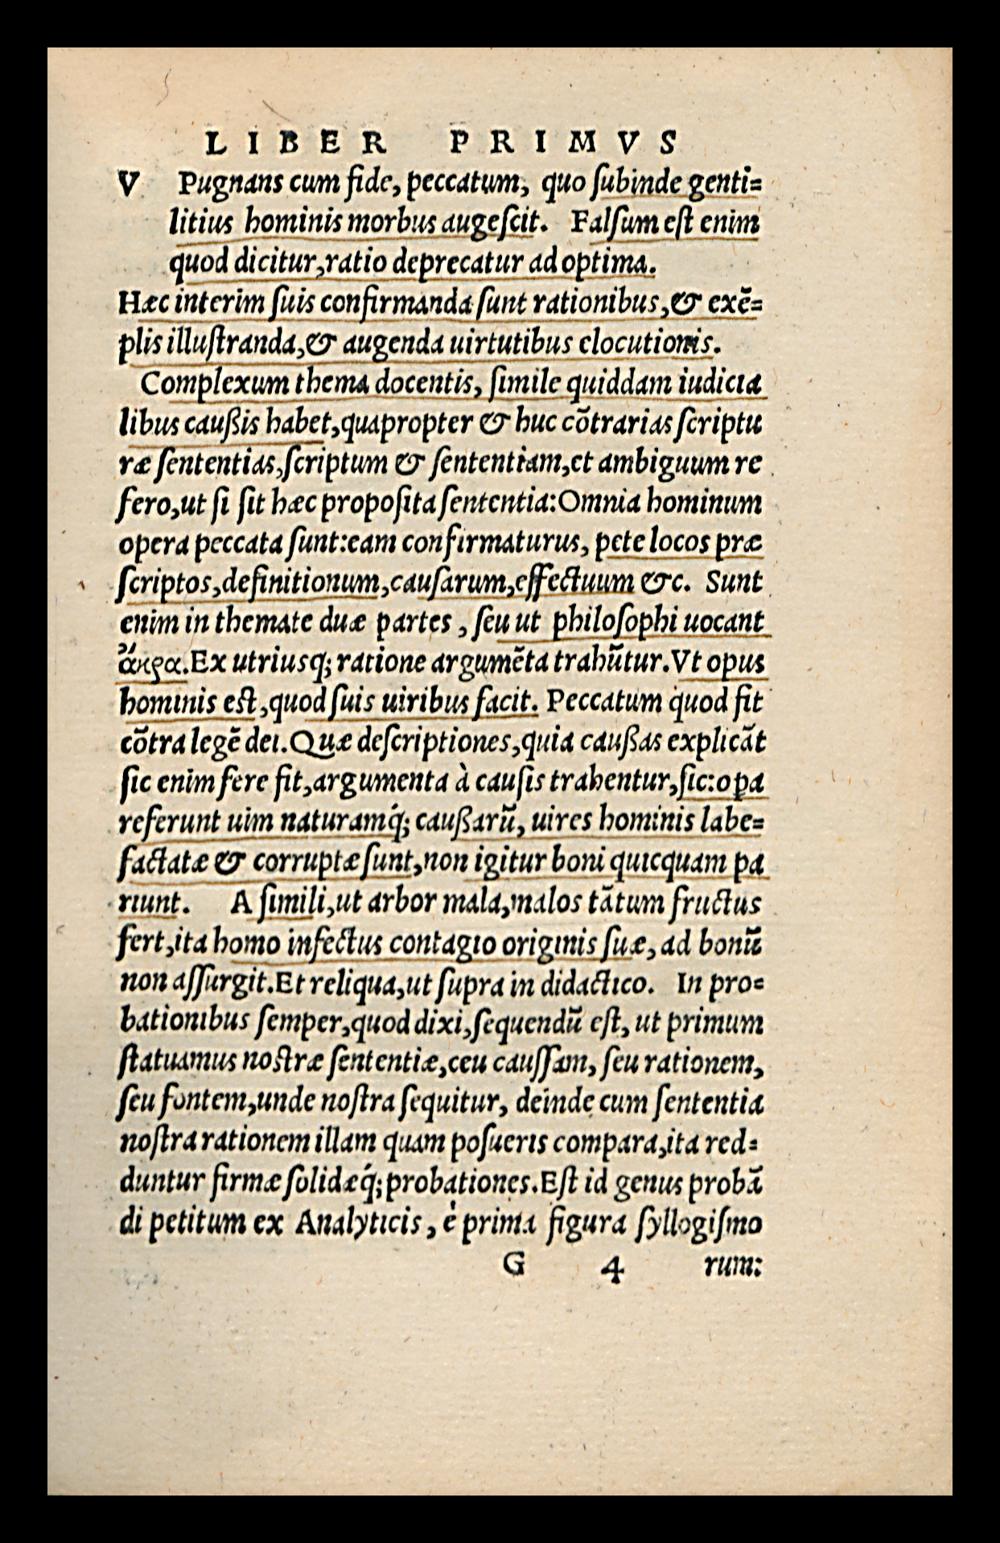 LIBER PRIMVS
V Pugnans cum fide, peccatum, quo ſubinde genti=
litius hominis morbus augeſcit. Falſum eſt enim
quod dicitur, ratio deprecatur ad optima.
Hæc interim ſuis confirmanda ſunt rationibus, & exẽ=
plis illuſtranda, & augenda uirtutibus elocutionis.
Complexum thema docentis, ſimile quiddam iudicia
libus cauſsis habet, quapropter & huc cõtrarias ſcriptu
ræ ſententias, ſcriptum & ſententiam, et ambiguum re
fero, ut ſi ſit hæc propoſita ſententia: Omnia hominum
opera peccata ſunt: eam confirmaturus, pete locos præ
ſcriptos, definitionum, cauſarum, effectuum &c. Sunt
enim in themate duæ partes, ſeu ut philoſophi uocant
ἄκρα. Ex utriusq; ratione argumẽta trahũtur. Vt opus
hominis eſt, quod ſuis uiribus facit. Peccatum quod fit
cõtra legẽ dei. Quæ deſcriptiones, quia cauſsas explicãt
ſic enim fere fit, argumenta à cauſis trahentur, ſic: oꝑa
referunt uim naturamq́; cauſsarũ, uires hominis labe=
factatæ & corruptæ ſunt, non igitur boni quicquam pa
riunt. A ſimili, ut arbor mala, malos tãtum fructus
fert, ita homo infectus contagio originis ſuæ, ad bonũ
non aſſurgit. Et reliqua, ut ſupra in didactico. In pro=
bationibus ſemper, quod dixi, ſequendũ eſt, ut primum
ſtatuamus noſtræ ſententiæ, ceu cauſſam, ſeu rationem,
ſeu fontem, unde noſtra ſequitur, deinde cum ſententia
noſtra rationem illam quam poſueris compara, ita red=
duntur firmæ ſolidæq́; probationes. Eſt id genus probã
di petitum ex Analyticis, è prima figura ſyllogiſmo
G 4 rum: